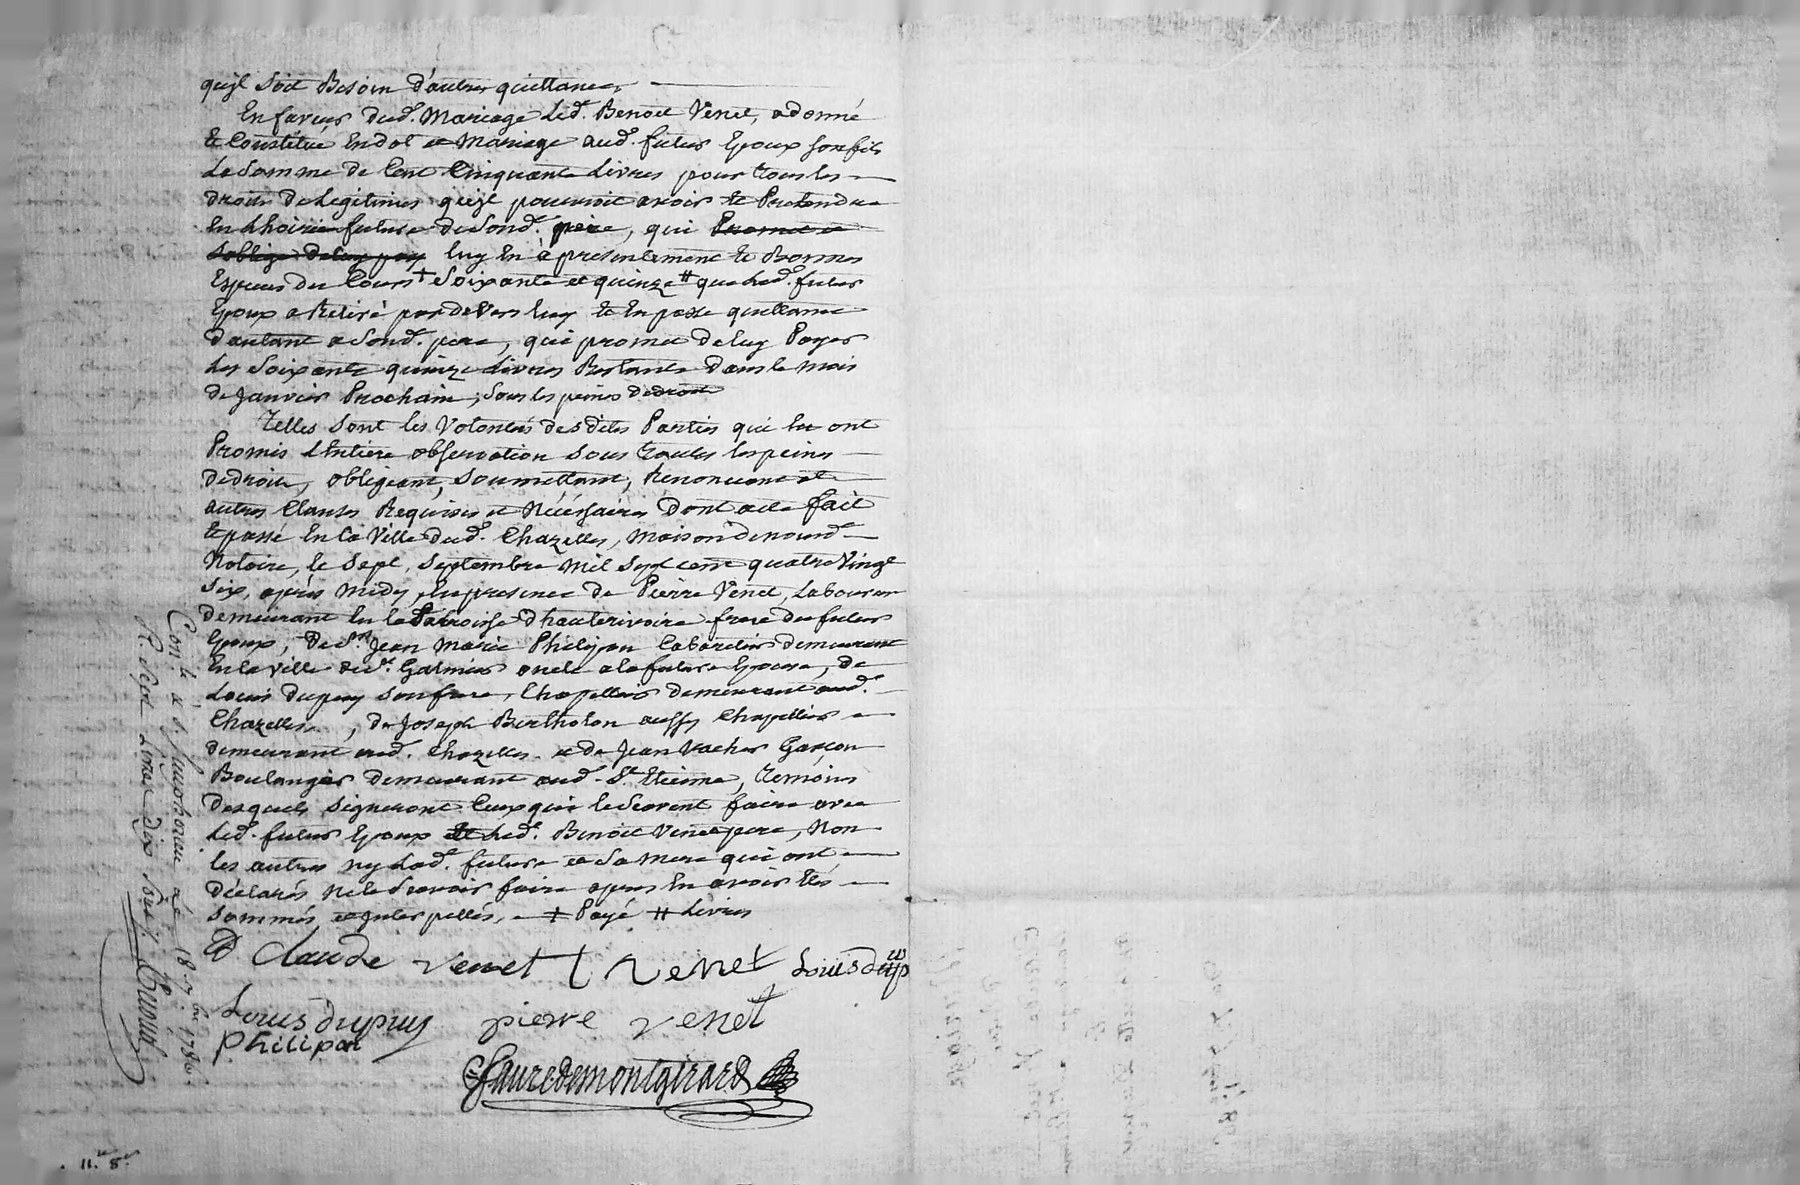 quil soit Besoin d'autres quittances,
En faveur dud. Mariage Led. Benoit Venet, a donné
Et Constitué En dot et Mariage aud. futur Epoux son fils
La Somme de Cent Cinquante Livres pour tous les
droits de Legitimes quil pourroit avoir Et Pretendre
En L'hoirie future de Sond. père, qui Promet et
Soblige de luy pay luy En à presentement Et Bonnes
Especes du Cours + Soixante et quinze # que Led. futur
Epoux a Retiré par devers luy Et En passe quittance
d'autant a Sond. pere, qui promet de luy Payer
Les Soixante quinze Livres Restante dans le mois
de Janvier Prochain, Sous les peines de droit
Telles Sont les Volontés des dites Parties qui En ont
Promis L'Entière observation Sous Toutes les peines
de droit, obligeant, Soumettant, Renoncant et
autres Clauses Requises et Nécéssaires Dont acte fait
Et passé En la Ville dud. Chazelles, maison de nousd.
Notaire, le Sept, Septembre mil Sept cent quatre Vingt
Six, après midy, En presence de Pierre Venet, Laboureur
demeurant En la Parroisse d'hauterivoire frere du futur
Epoux, De Sr. Jean Marie Philipon Cabaretier demeurant
En la ville de St. Galmier oncle a la future Epouse, de
Louis dupuy Son frere, Chapellier demeurant aud.
Chazelles, de Joseph Bertholon aussy Chapellier
demeurant aud. Chazelles et de Jean Vacher Garçon
Boulanger demeurant aud. St. Etienne, Temoins
desquels Signeront Ceux qui le Scavent faire avec
Led. futur Epoux Et Led. Benoit Venet pere, Non
les autres ny Lad. future et Sa Mere qui ont
déclarés Ne le Scavoir faire apres En avoir Etés
Sommés et Interpellés, + Payé # Livres
Claude Venet Venet Louis dup
Louis dupuy pierre Venet
Philipon
fauredemontgirard
Con. le à S. le 18 7bre 1786.
R. Sept Livres dix Sols
11. 8.